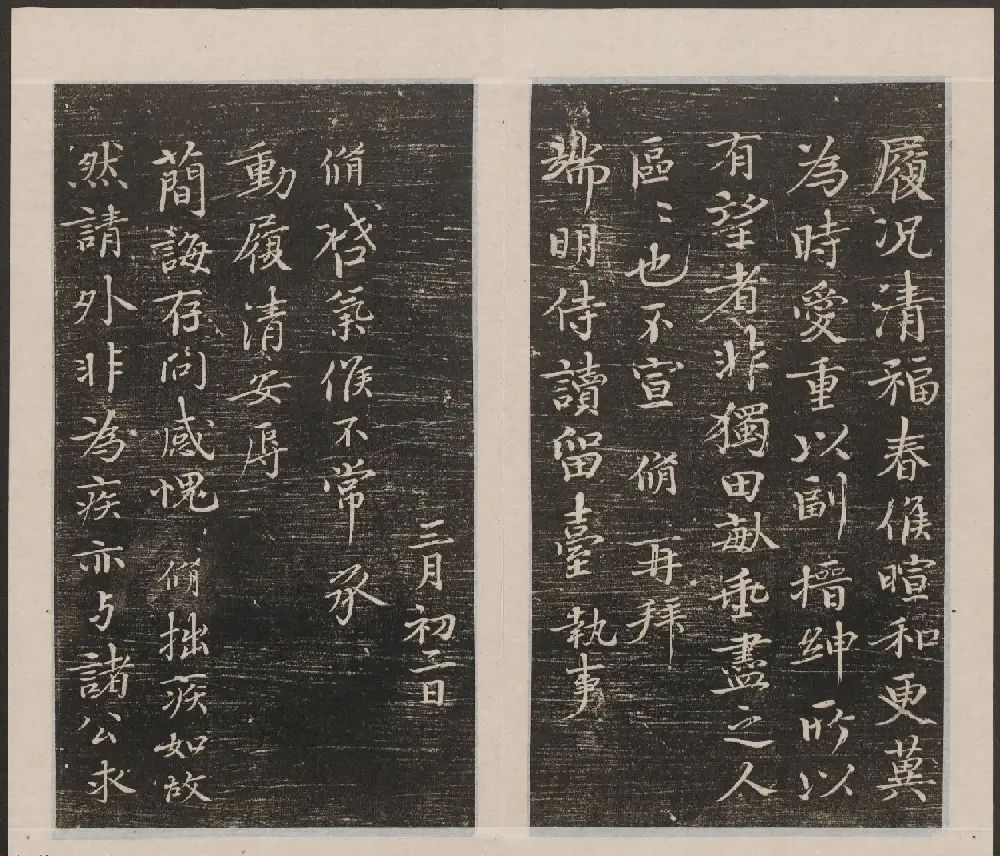 履况清福春候暄和更冀
為時愛重以副搢紳所以
有望者非獨田畝垂盡之人
區〻也不宣 脩再拜
端明侍讀留臺 執事
三月初二日
脩啓氣候不常承
動履清安辱
蕳誨存問感愧脩拙疾如故
然請外非為疾亦与諸公求